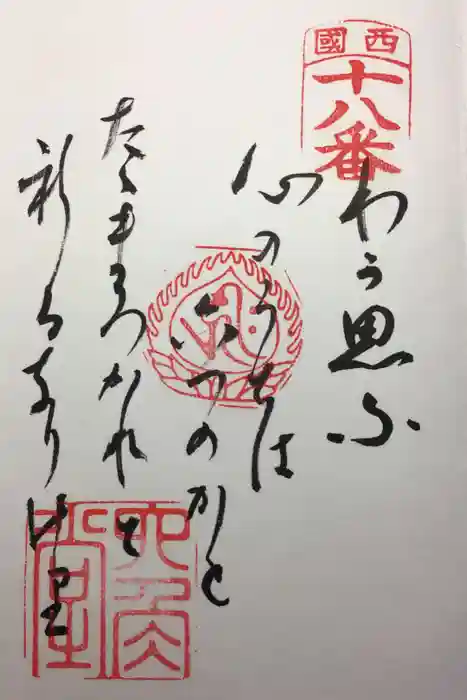 西國
十八番
わか思ふ
心のうちは
六つのかと
たゝまろかれと
祈るなりけり
六角堂